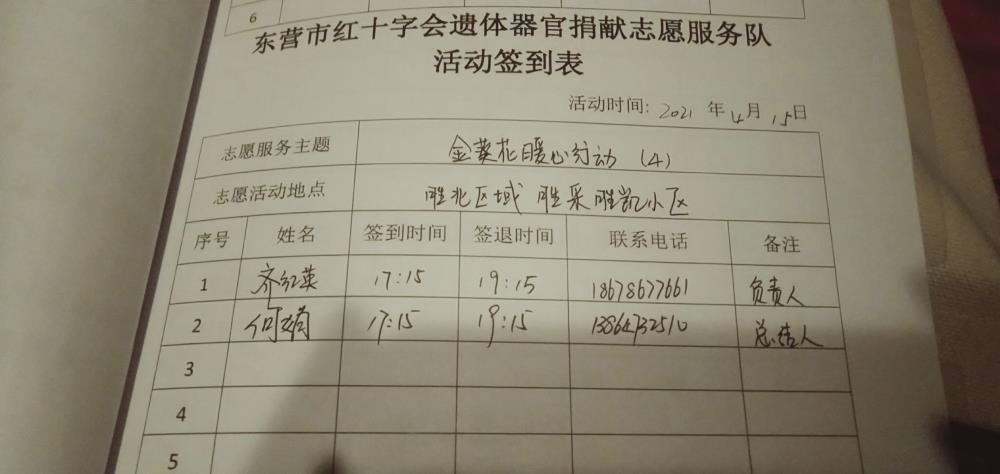 6
东营市红十字会遗体器官捐献志愿服务队
活动签到表
活动时间: 2021 年 4 月 15 日
志愿服务主题 金葵花暖心行动 (4)
志愿活动地点 胜北区域 胜采胜凯小区
序号 姓名 签到时间 签退时间 联系电话 备注
1 齐红英 17:15 19:15 18678677661 负责人
2 何 17:15 19:15 总结人
3
4
5